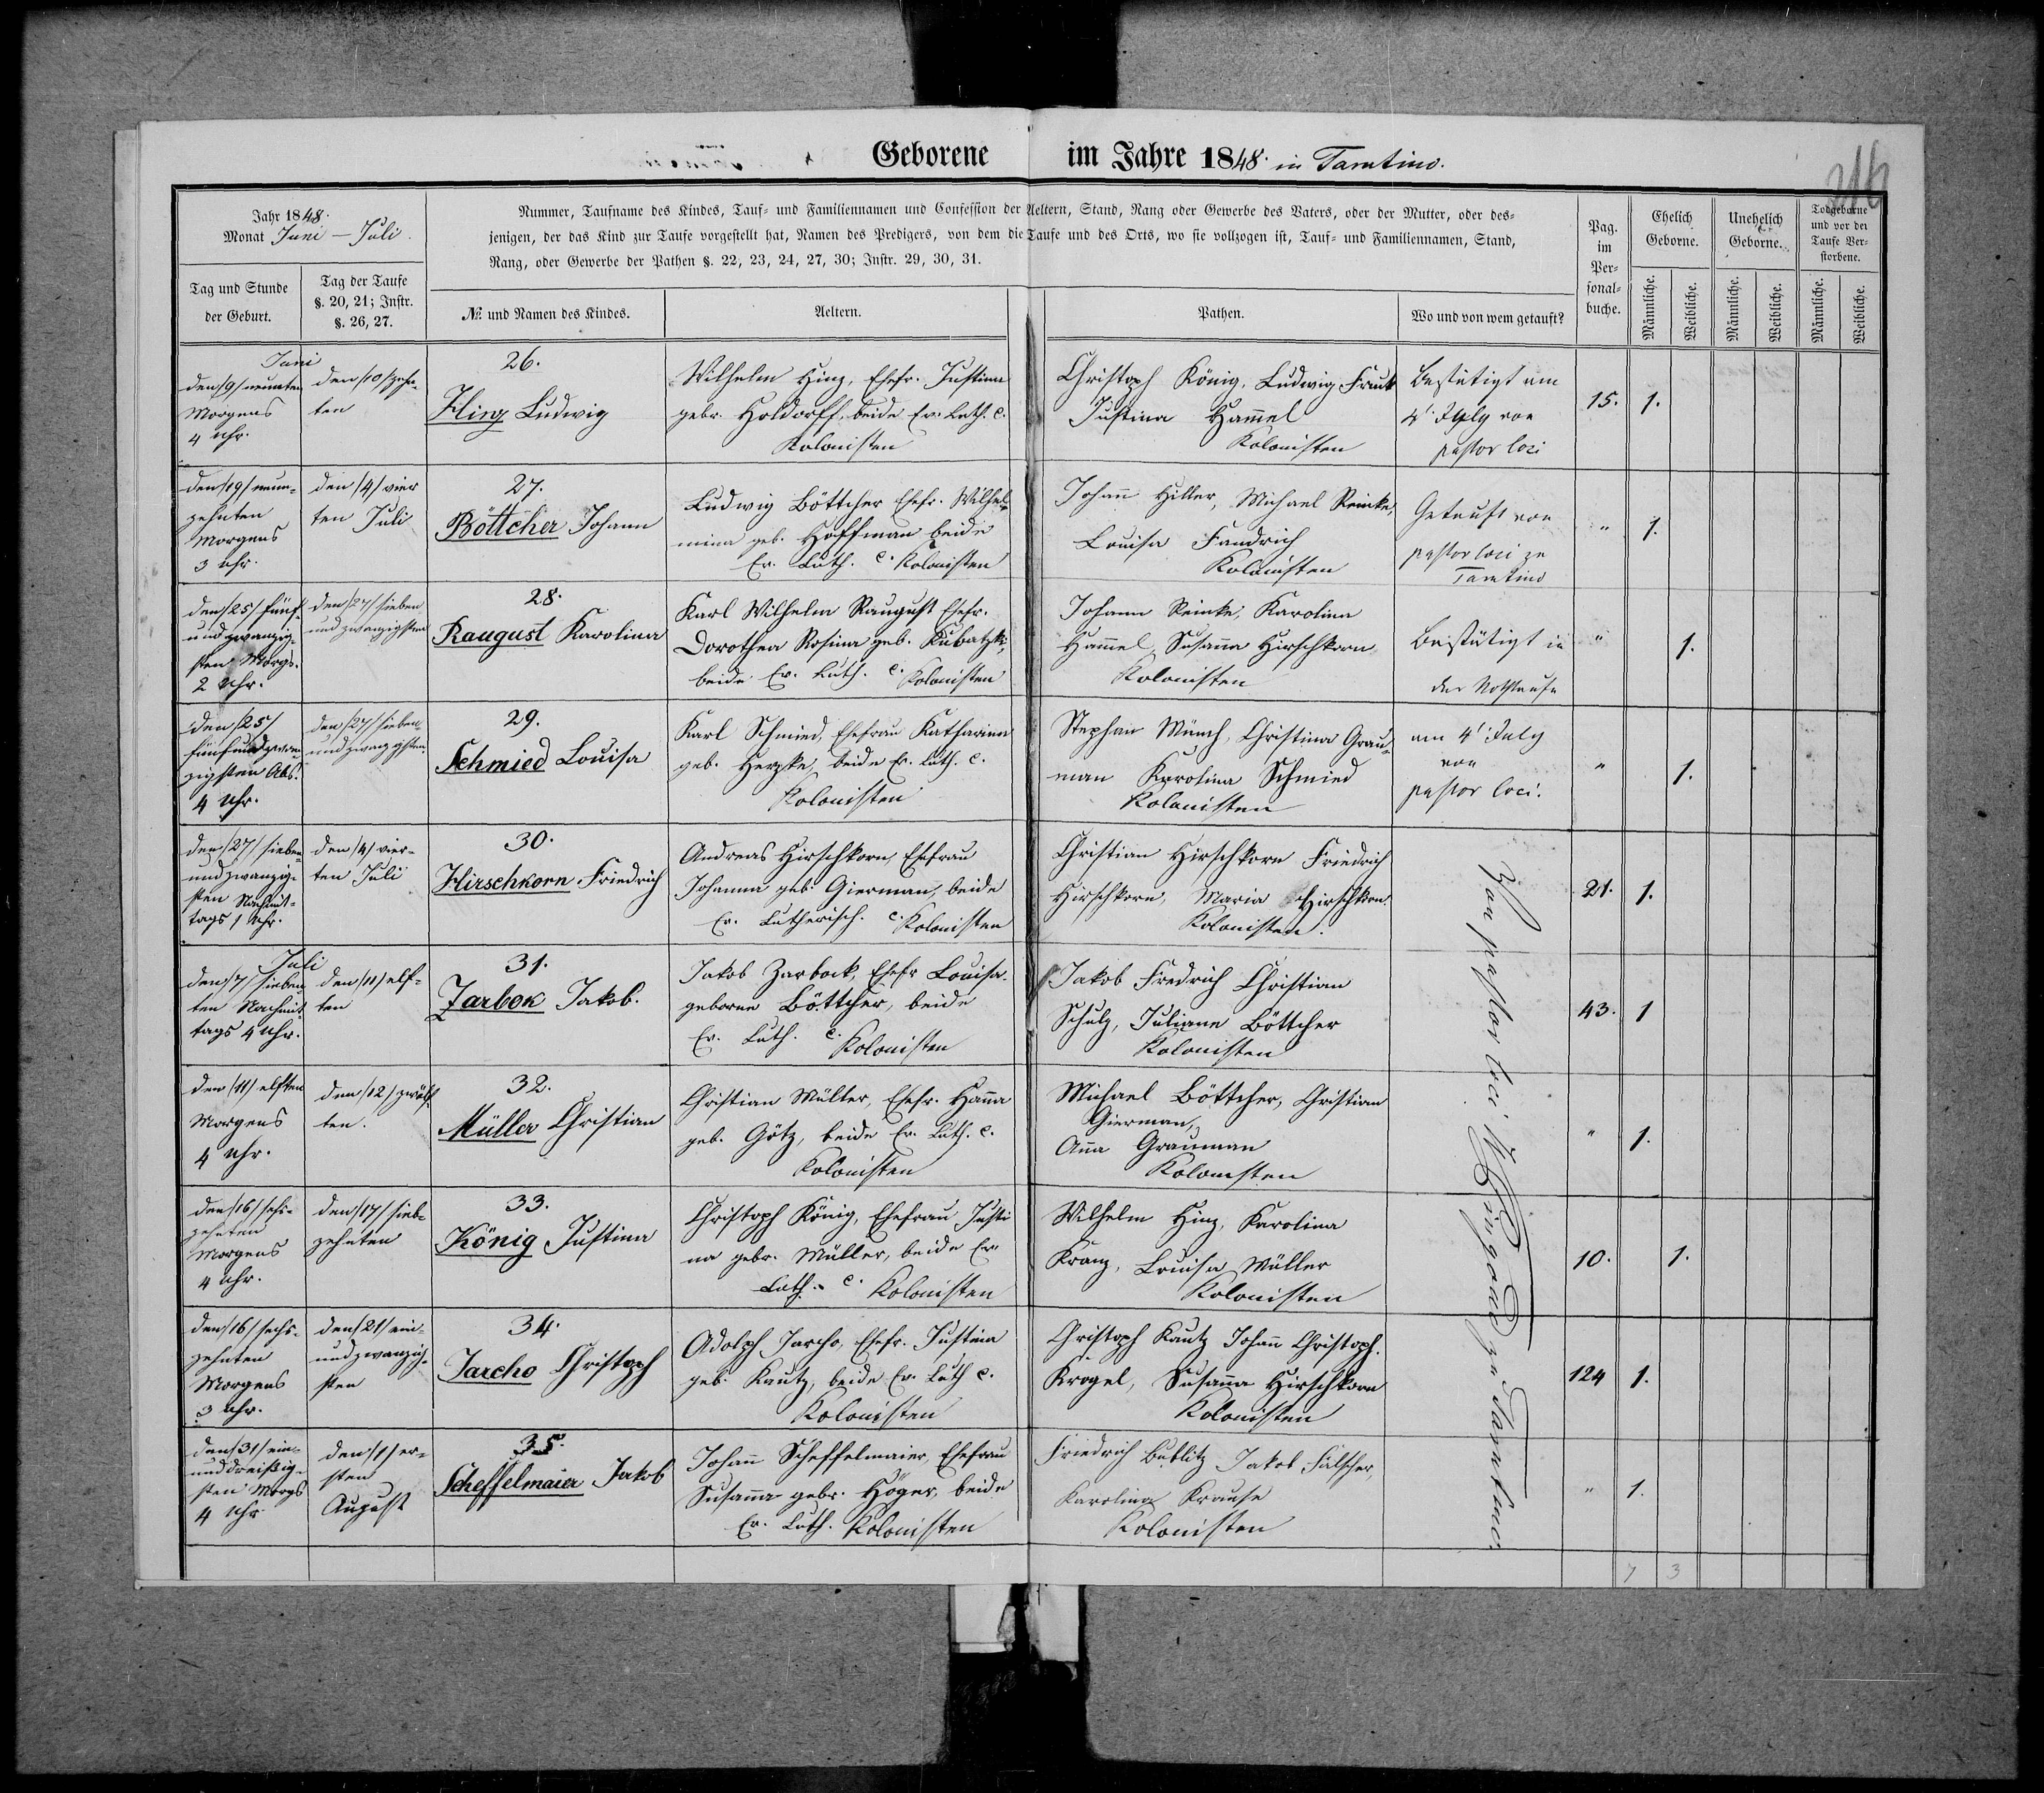 Geborene im Jahre 1848. in Tarutino.
Jahr 1848.
Monat Juni – Juli.
Nummer, Taufname des Kindes, Tauf- und Familiennamen und Confession der Aeltern, Stand, Rang oder Gewerbe des Vaters, oder der Mutter, oder des-
jenigen, der das Kind zur Taufe vorgestellt hat, Namen des Predigers, von dem die Taufe und des Orts, wo sie vollzogen ist, Tauf- und Familiennamen, Stand,
Rang, oder Gewerbe der Pathen §. 22, 23, 24, 27, 30; Instr. 29, 30, 31.
Pag.
im
Per-
sonal-
buche.
Ehelich
Geborne.
Unehelich
Geborne.
Todgeborne
und vor der
Taufe Ver-
storbene.
Tag und Stunde
der Geburt.
Tag der Taufe
§. 20, 21; Instr.
§. 26, 27.
№ und Namen des Kindes.
Aeltern.
Pathen.
Wo und von wem getauft?
Männliche.
Weibliche.
Männliche.
Weibliche.
Männliche.
Weibliche.
Juni
den /9/ neunten
Morgens
4 Uhr.
den /10/ zehn-
ten
26.
Hinz Ludwig
Wilhelm Hinz, Ehefr. Justina
gebr. Holdorff, beide Ev. Luth. C.
Kolonisten
Christoph König, Ludwig
Justina Ham̄el
Kolonisten
Bestätigt am
4' July von
pastor loci
15.
1.
den /19/ neun-
zehnten
Morgens
3 Uhr.
den /4/ vier
ten Juli
27.
Böttcher Johann
Ludwig Böttcher Ehefr. Wilhel-
mina geb. Hoffman beide
Ev. Luth. C. Kolonisten
Johan̄ Hiller, Michael Reinke,
Louisa Fandrich
Kolonisten
Getauft von
pastor loci zu
Tarutino
"
1.
den /25/ fünf-
und zwanzig-
sten Morgs.
2 Uhr.
den /27/ sieben
und zwanzigsten
28.
Raugust Karolina
Karl Wilhelm Raugust Ehefr.
Dorothea Rosina geb. Kubatzki,
beide Ev. Luth. C. Kolonisten
Johann Reinke, Karolina
Ham̄el, Susan̄a Hirschkorn
Kolonisten
Bestätigt in
der Nothtaufe
"
1.
den /25/
fünf und zwan-
zigsten Abs.
4 Uhr.
den /27/ sieben-
und zwanzigsten
29.
Schmied Louisa
Karl Schmied, Ehefrau Katharina
geb. Herzke, beide Ev. Luth. C.
Kolonisten
Stephan Münch, Christina Grau-
man Karolina Schmied
Kolonisten
am 4' July
von
pastor loci.
"
1.
den /27/ sieben-
und zwanzig-
sten Nachmit-
tags 1 Uhr.
den /4/ vier-
ten Juli
30.
Hirschkorn Friedrich
Andreas Hirschkorn, Ehefrau
Johanna geb. Gierman, beide
Ev. Lutherisch. C. Kolonisten
Christian Hirschkorn Friedrich
Hirschkorn, Maria Hirschkorn
Kolonisten.
21.
1.
Juli
den /7/ sieben-
ten Nachmit-
tags 4 Uhr.
den /11/ elf-
ten
31.
Zarbok Jakob.
Jakob Zarbock, Ehefr Louisa
geborne Böttcher, beide
Ev. Luth. C. Kolonisten
Jakob Fredrich Christian
Schulz, Juliane Böttcher
Kolonisten
43.
1
den /11/ elften
Morgens
4 Uhr.
den /12/ zwölf-
ten.
32.
Müller Christian
Christian Müller, Ehefr. Han̄a
geb. Götz, beide Ev. Luth. C.
Kolonisten
Michael Böttcher, Christian
Gierman,
An̄a Grauman
Kolonisten
"
1.
den /16/ sechs-
zehnten
Morgens
4 Uhr.
den /17/ sieb-
zehnten
33.
König Justina
Christoph König, Ehefrau Justi
na gebr. Müller, beide Ev.
Luth. C. Kolonisten
Wilhelm Hinz, Karolina
Kranz, Louisa Müller
Kolonisten
10.
1.
den /16/ sechs-
zehnten
Morgens
3 Uhr.
den /21/ ein-
und zwanzig-
sten
34.
Jarcho Christoph
Adolph Jarcho, Ehefr. Justina
geb. Kautz, beide Ev. Luth C.
Kolonisten
Christoph Kautz Johan̄ Christoph
Krogel, Susan̄a Hirschkorn
Kolonisten
124
1.
den /31/ ein-
und dreißig-
sten Morgs
4 Uhr
den /1/ er-
sten
August
35.
Scheffelmaier Jakob
Johan̄ Scheffelmaier, Ehefrau
Susan̄a gebr. Höger, beide
Ev. Luth. Kolonisten
Friedrich Bublitz Jakob Fälscher,
Karolina Krause
Kolonisten
"
1.
Von pastor loci zu Tarutino.
7 3